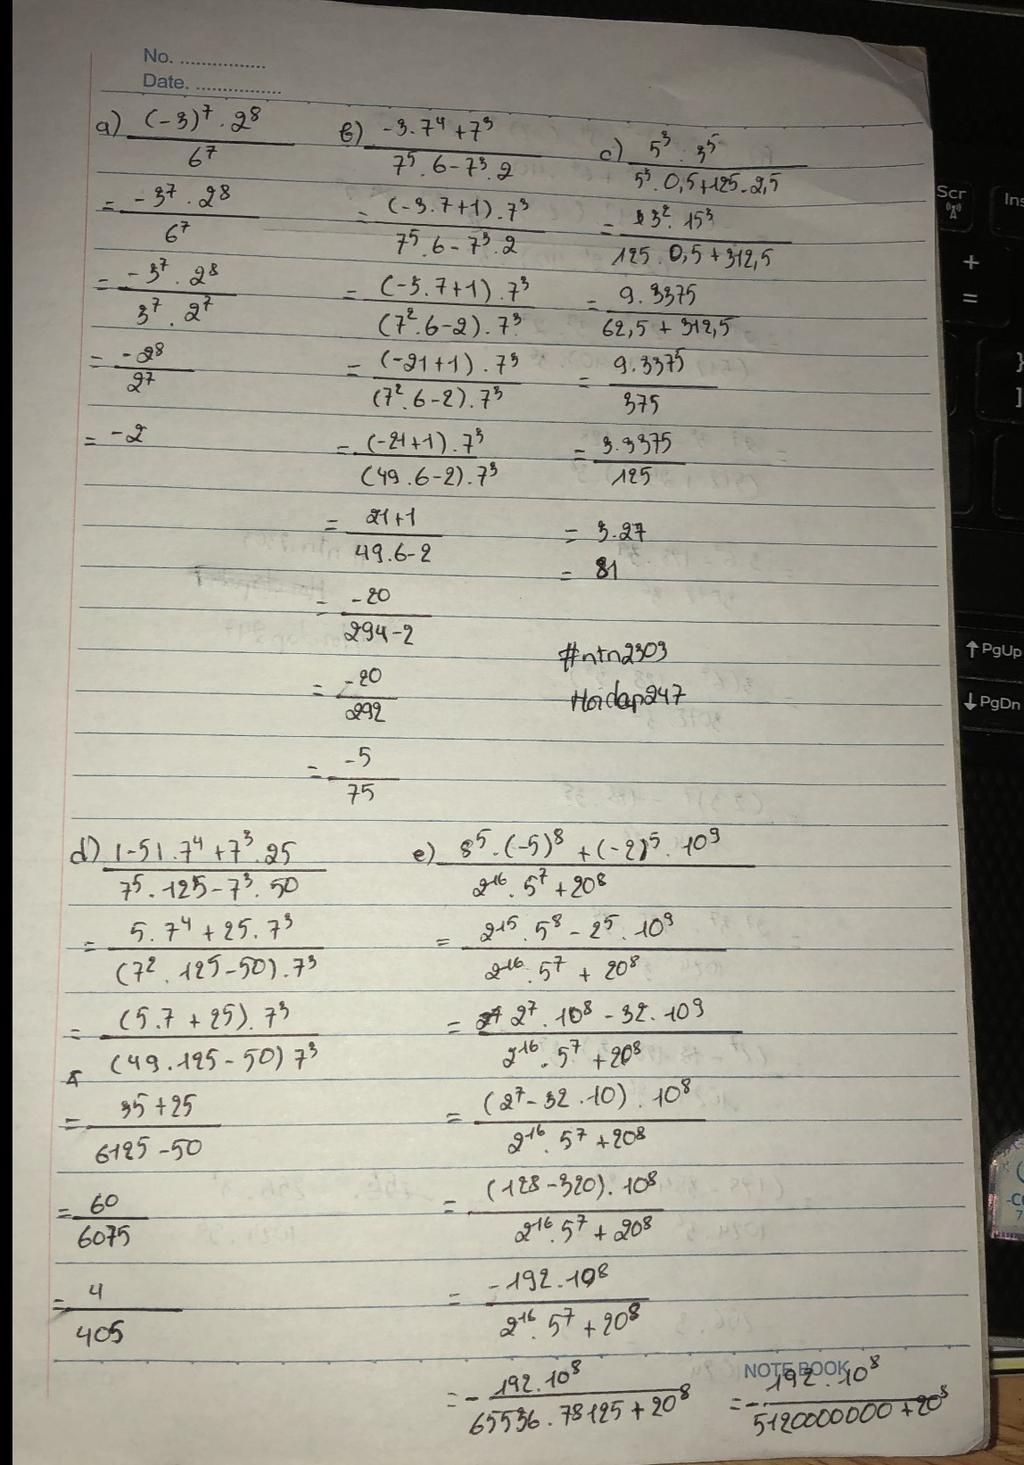 No. ...............
Date. ...............
a) \frac{(-3)^7 . 2^8}{6^7}
= \frac{-3^7 . 2^8}{6^7}
= \frac{-3^7 . 2^8}{3^7 . 2^7}
= \frac{-2^8}{2^7}
= -2
b) \frac{-3.7^4 + 7^3}{7^5 . 6 - 7^3 . 2}
= \frac{(-3.7+1) . 7^3}{7^5 . 6 - 7^3 . 2}
= \frac{(-3.7+1) . 7^3}{(7^2 . 6-2) . 7^3}
= \frac{(-21+1) . 7^3}{(7^2 . 6-2) . 7^3}
= \frac{(-21+1) . 7^3}{(49.6-2) . 7^3}
= \frac{21+1}{49.6-2}
= \frac{-20}{294-2}
= \frac{-20}{292}
= \frac{-5}{75}
c) \frac{5^3 . 3^5}{5^3 . 0,5+125.2,5}
= \frac{3^2 . 15^3}{125 . 0,5+312,5}
= \frac{9.3375}{62,5 + 312,5}
= \frac{9.3375}{375}
= \frac{3.3375}{125}
= 3.27
= 81
#ntn2303
Hoidap247
d) \frac{|-5| . 7^4 + 7^3 . 25}{7^5 . 125 - 7^3 . 50}
= \frac{5.7^4 + 25.7^3}{(7^2 . 125-50) . 7^3}
= \frac{(5.7 + 25) . 7^3}{(49.125-50) 7^3}
= \frac{35+25}{6125-50}
= \frac{60}{6075}
= \frac{4}{405}
e) \frac{8^5 . (-5)^8 + (-2)^5 . 10^9}{2^{16} . 5^7 + 20^8}
= \frac{2^{15} . 5^8 - 2^5 . 10^9}{2^{16} . 5^7 + 20^8}
= \frac{2^7 . 10^8 - 32.10^9}{2^{16} . 5^7 + 20^8}
= \frac{(2^7 - 32.10) . 10^8}{2^{16} . 5^7 + 20^8}
= \frac{(128-320) . 10^8}{2^{16} . 5^7 + 20^8}
= \frac{-192.10^8}{2^{16} . 5^7 + 20^8}
= - \frac{192.10^8}{65536.78125 + 20^8} = - \frac{192.10^8}{5120000000 + 20^8}
NOTE BOOK
Scr
Ins
+
=
}
]
↑ PgUp
↓ PgDn